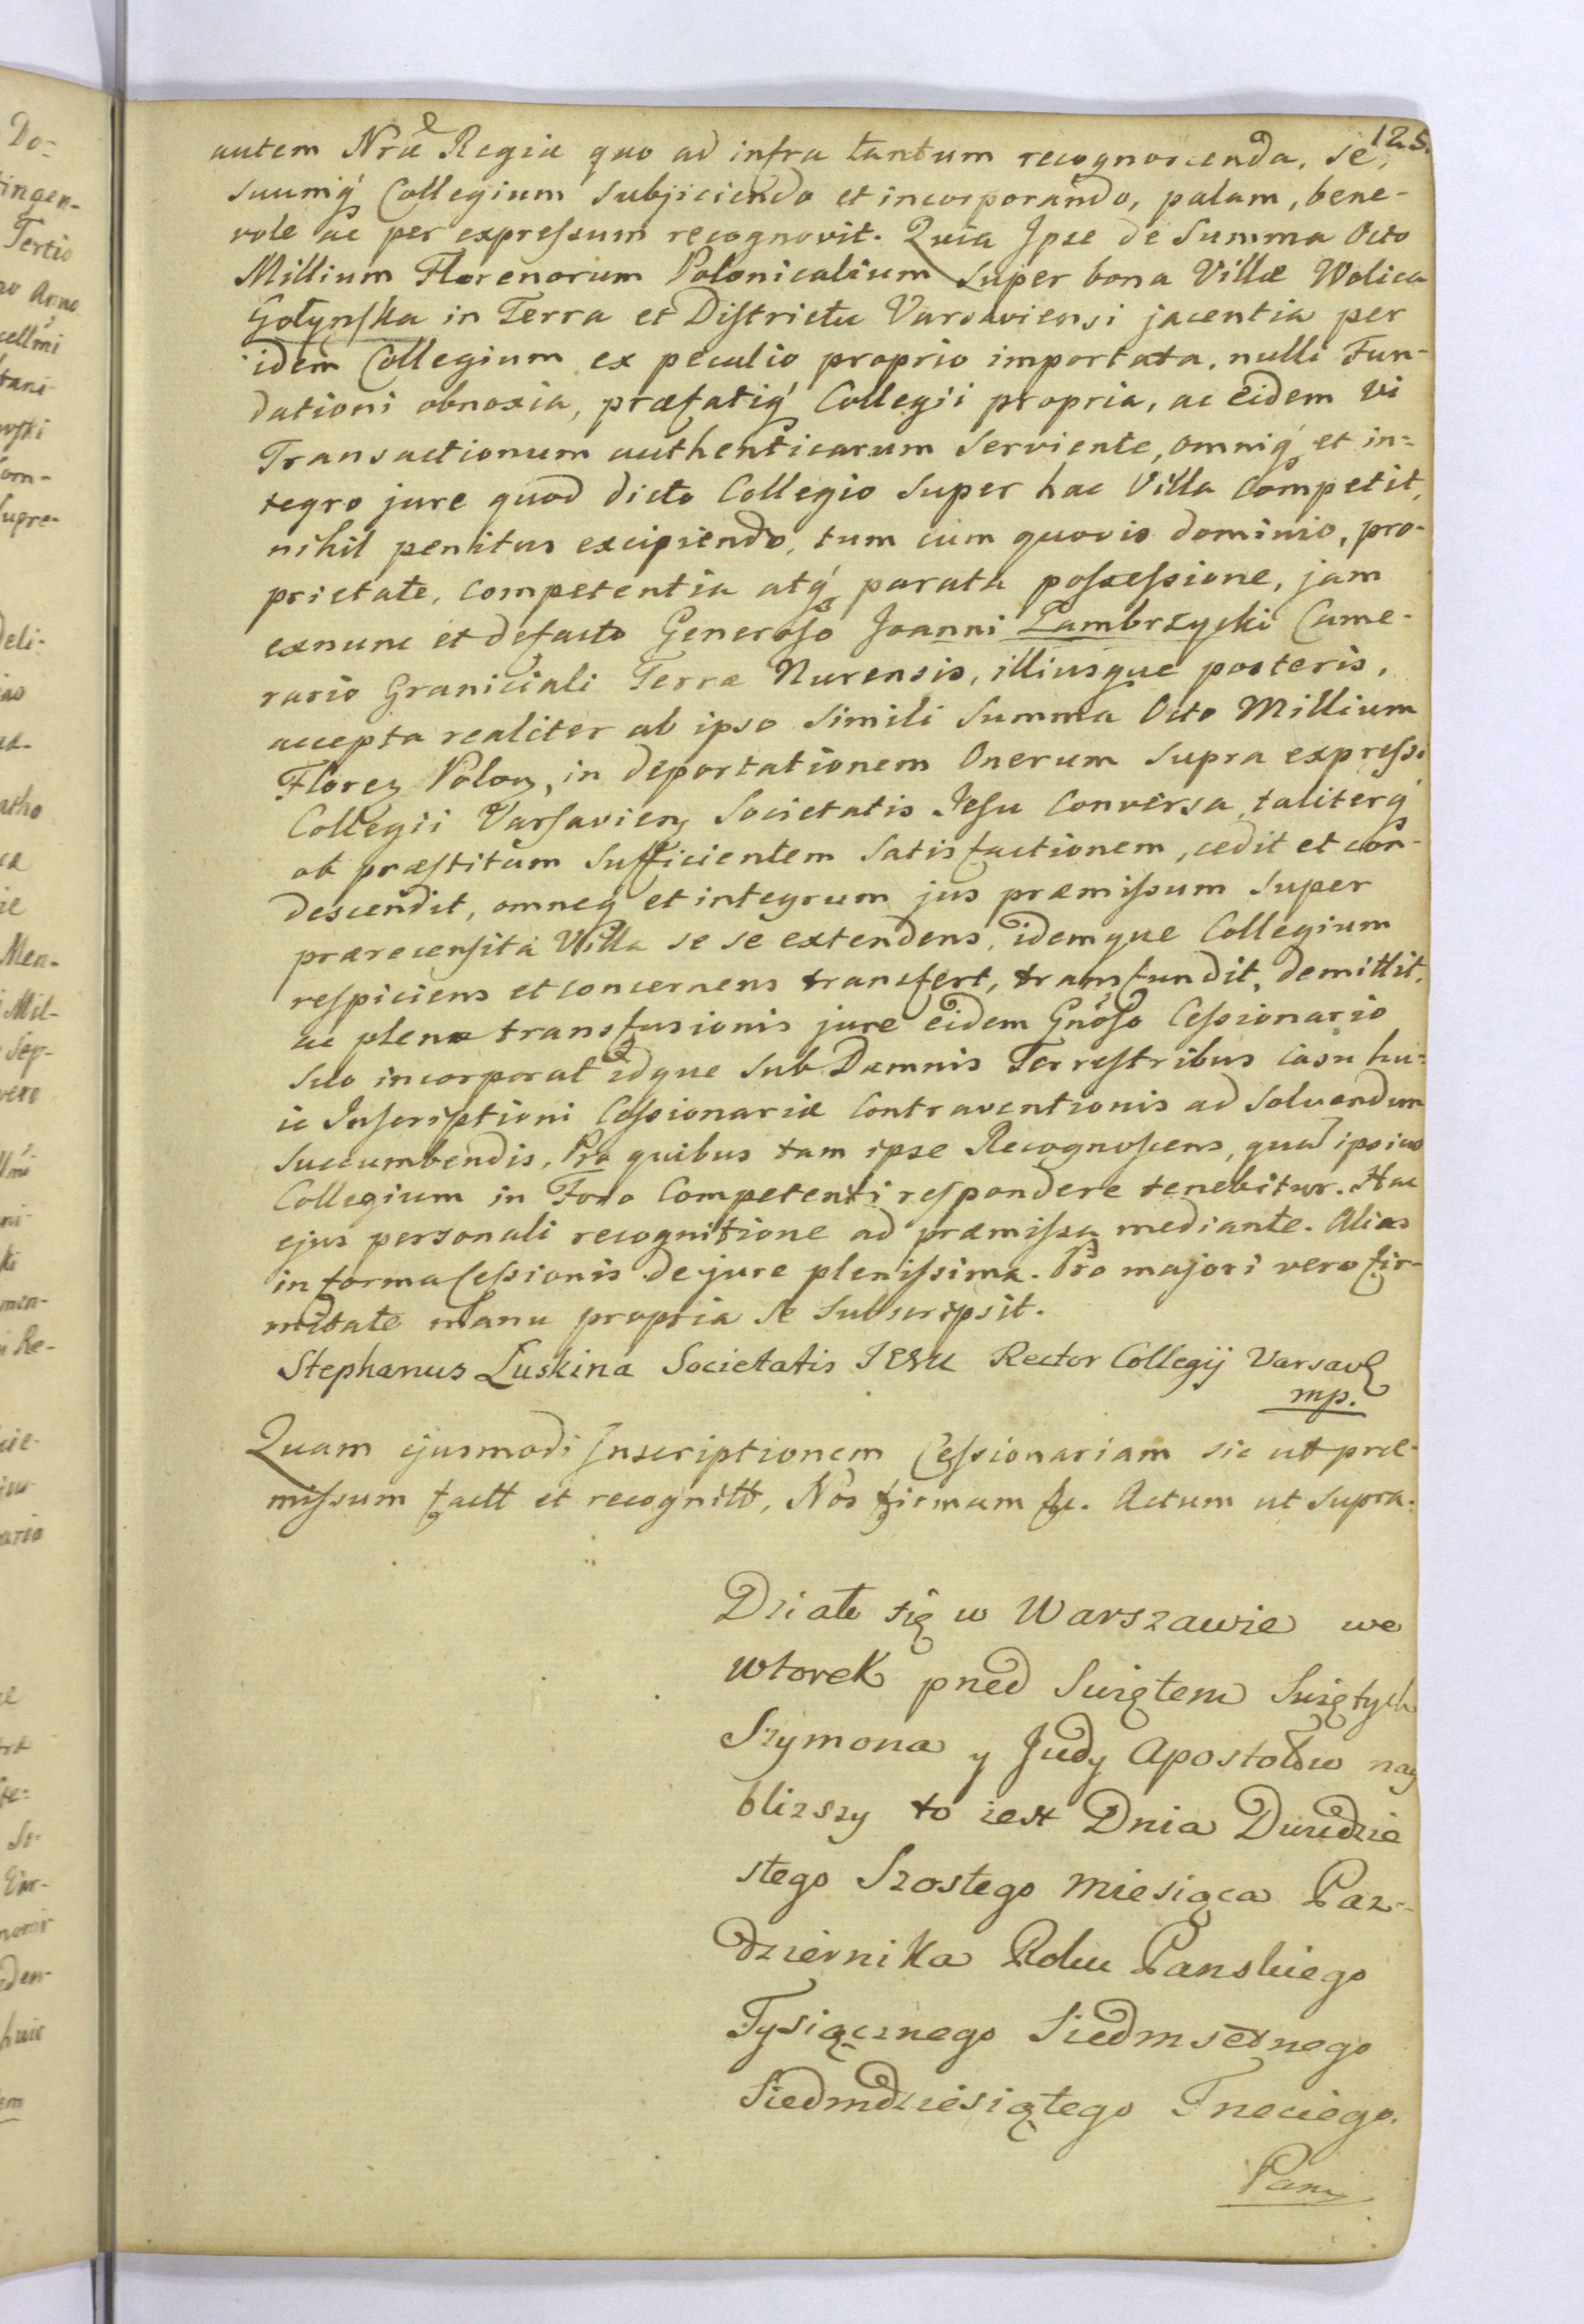 125.
autem Nræ Regiæ quo ad infra tantum recognoscenda, se,
suumq́ Collegium subjiciendo et incorporando, palam, bene-
vole ac per expreſsum recognovit. Quia Ipse de Summa Octo
Millium Florenorum Polonicalium super bona Villæ Wolica
Gołynſka in Terra et Diſtrictu Varsaviensi jacentia per
idem Collegium ex peculio proprio importata, nulli Fun-
dationi obnoxia, præfatiq́ Collegii propria, ac Eidem vi
Transactionum authenticarum serviente, omniq́ et in=
tegro jure quod dicto Collegio super hac Villa competit,
nihil penitus excipiendo, tum cum quovis dominio, pro-
prietate, competentia atq́ parata poſseſsione, jam
exnunc et defacto Generoſo Joanni Lambrzycki Came-
rario Graniciali Terræ Nurensis, illiusque posteris,
accepta realiter ab ipso simili Summa Octo Millium
Floreȝ Poloȝ, in deportationem Onerum supra expreſsi
Collegii Varſavieȝ Societatis Jeſu conversa, taliterq́
ob præſtitam sufficientem satisfactionem, cedit et con-
descendit, omneq́ et integrum jus præmiſsum super
prærecenſita Villa se se extendens, idemque Collegium
reſpiciens et concernens transfert, transfundit, demittit,
ac plenæ transfusionis jure eidem Gnoſo Ceſsionario
suo incorporat idque sub Damnis Terreſtribus casu hu=
ic Inſcriptioni Ceſsionariæ contraventionis ad solvendum
succumbendis, Pro quibus tam ipse Recognoſcens, quam ipsius
Collegium in Foro Competenti reſpondere tenebitur. Hac
ejus personali recognitione ad præmiſsa mediante. Alias
in forma Ceſsionis de jure pleniſsima. Pro majori vero fir-
mitate manu propria se subscripsit.
Stephanus Łuskina Societatis JESU Rector Collegij Varsav
mp.
Quam ejusmodi Inscriptionem Ceſsionariam sic ut præ-
miſsum factt et recognitt, Nos firmam &c. Actum ut supra.
Działo się w Warszawie we
wtorek przed Swiętem Swiętych
Szymona y Judy Apostołow nay
bliższy to iest Dnia Dwudzie
stego Szostego Miesiąca Paz-
dziernika Roku Panskiego
Tysiącznego Siedmsetnego
Siedmdziesiątego Trzeciego.